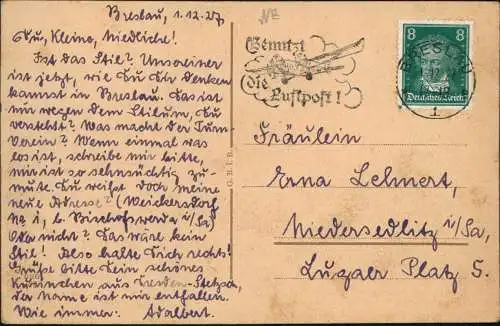 Breslau, 1.12.27.
Du, Kleine, Niedliche!
Ist das Stil? Unsereiner
ist jetzt, wie Du Dir denken
kannst in Breslau. Das ist
nur wegen dem Stilum, Du
verstehst? Was macht der Turn-
Verein? Wenn einmal was
los ist, schreibe mir bitte,
mir ist so sehnsüchtig zu-
mute. Du weißt doch meine
neue Adresse? (Weickersdorf
No 1, b. Bischofswerda i/Sa)
Oder nicht? Das wäre kein
Stil! Also halte Dich rechts!
Grüße bitte Dein schönes
Kusinchen aus Dresden-Stetzsch,
der Name ist mir entfallen.
Wie immer: Adalbert.
G.H.i.B.
Benutzt
die
Luftpost!
8 8
Deutsches Reich
BRESLAU
1
Fräulein
Erna Lehnert,
Niedersedlitz i/Sa,
Lugaer Platz 5.